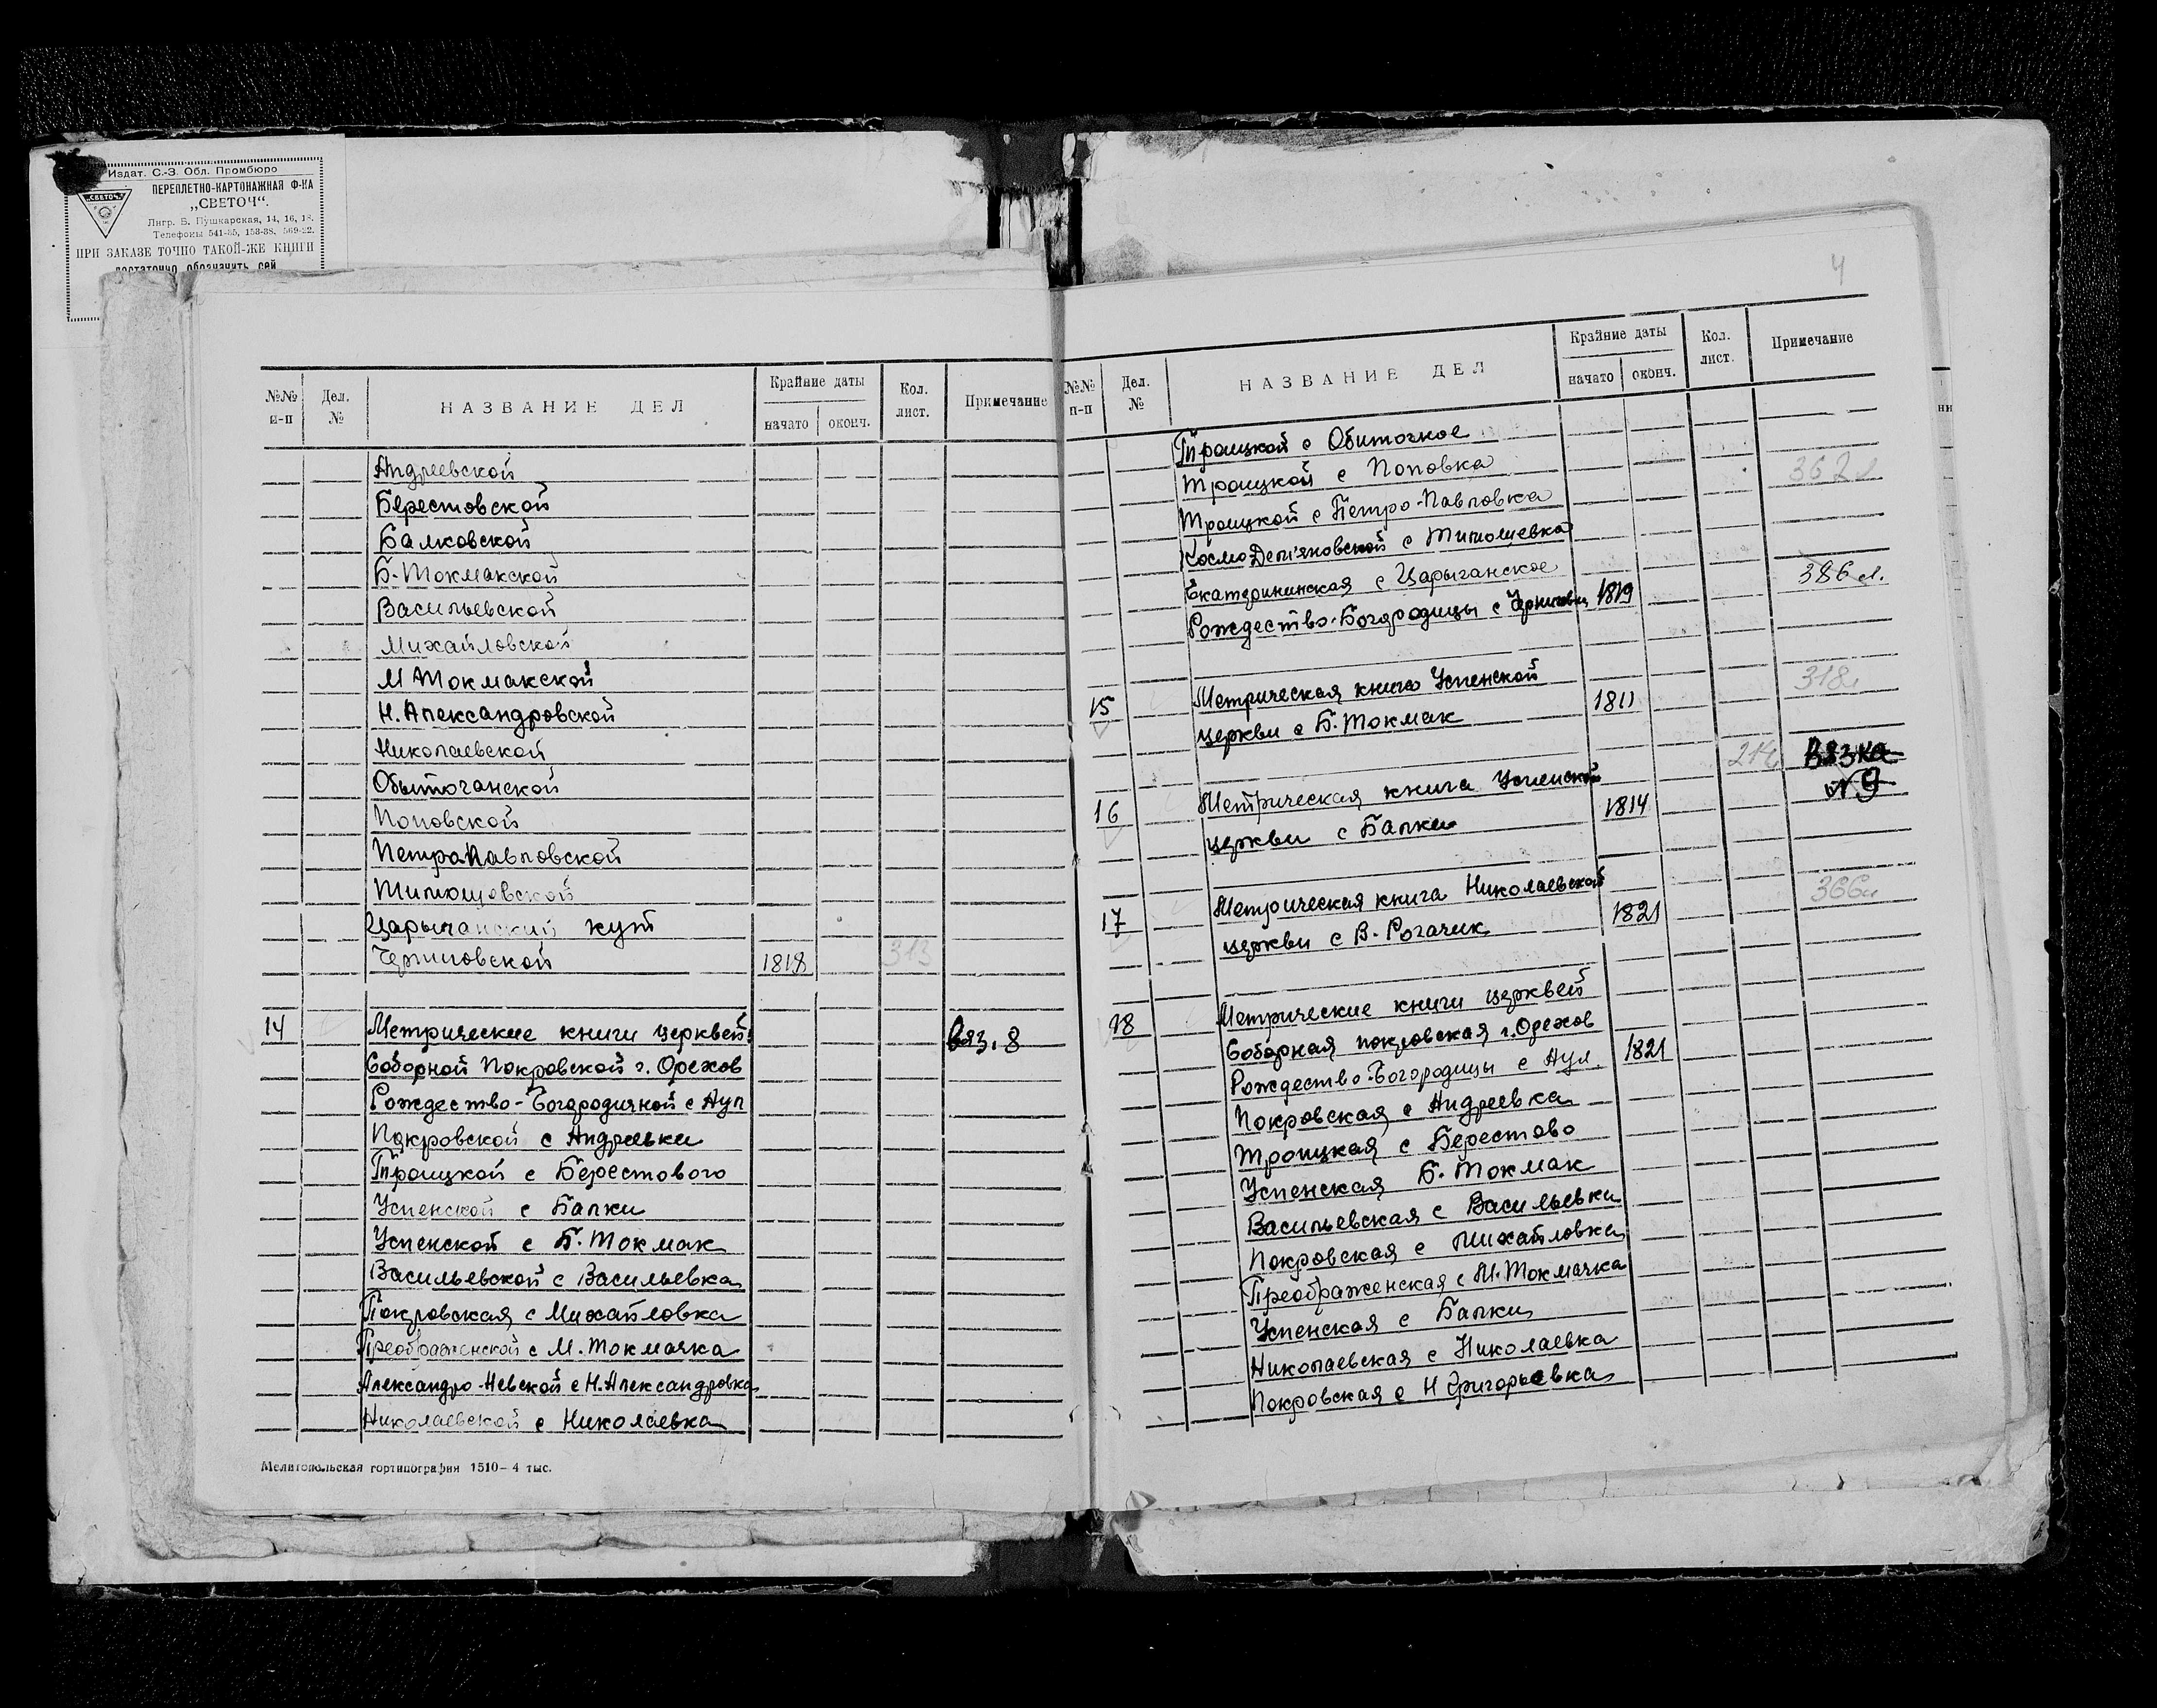 Издат. С.-З. Обл. Промбюро
ПЕРЕПЛЕТНО-КАРТОНАЖНАЯ Ф-КА
„СВЕТОЧ“
„СВЕТОЧ“.
Лнгр. Б. Пушкарская, 14, 16, 18.
Телефоны 541-35, 153-38, 569-22.
ПРИ ЗАКАЗЕ ТОЧНО ТАКОЙ-ЖЕ КНИГИ
достаточно обозначить сей
№№ п-п Дел. № НАЗВАНИЕ ДЕЛ Крайние даты начато оконч. Кол. лист. Примечание
Андреевской
Берестовской
Балковской
Б-Токмакской
Васильевской
Михайловской
М Токмакской
Н. Александровской
Николаевской
Обыточанской
Поповской
ПетраПавловской
Тимошовской
Царычанский кут
Черниговской 1818 313
14 Метрические книги церквей: Вяз. 8
Соборной Покровской г. Орехов
Рождество-Богородичной с Аул
Покровской с Андреевки
Троицкой с Берестового
Успенской с Балки
Успенской с Б. Токмак
Васильевской с Васильевка
Покровская с Михайловка
Преображенской с М. Токмачка
Александро-Невской с Н. Александровка
Николаевской с Николаевка
Мелитопольская гортипография 1510—4 тыс.
4
№№ п-п Дел. № НАЗВАНИЕ ДЕЛ Крайние даты начато оконч. Кол. лист. Примечание
Троицкой с Обиточное
Троицкой с Поповка 362 л
Троицкой с Петро-Павловка
Космо Демьяновской с Тимошевка
Екатерининская с Царычанское 386 л.
Рождество-Богородицы с Черниговки 1819
15 Метрическая книга Успенской 318л
церкви с Б. Токмак 1811
214 Вязка
№ 9
16 Метрическая книга Успенской
церкви с Балки 1814
17 Метрическая книга Николаевской 366л
церкви с В. Рогачик 1821
18 Метрические книги церквей
Соборная покровская г. Орехов
Рождество-Богородицы с Аул. 1821
Покровская с Андреевка
Троицкая с Берестово
Успенская Б. Токмак
Васильевская с Васильевки
Покровская с Михайловка
Преображенская с М. Токмачка
Успенская с Балки
Николаевская с Николаевка
Покровская с Н Григорьевка